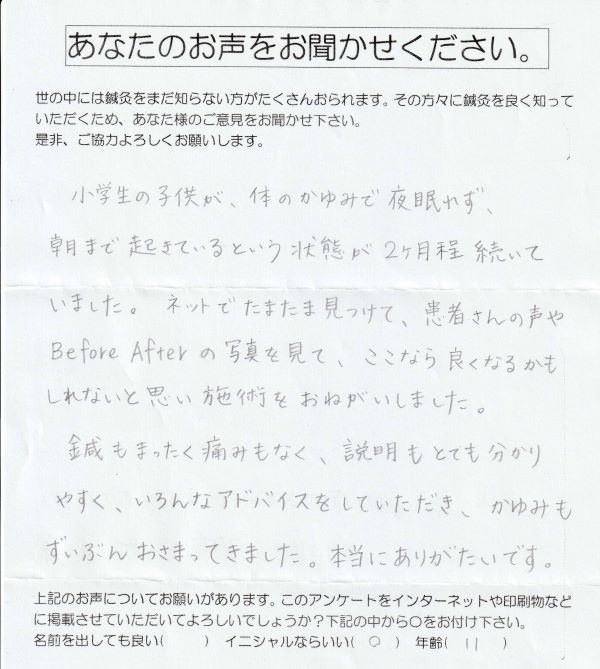 あなたのお声をお聞かせください。
世の中には鍼灸をまだ知らない方がたくさんおられます。その方々に鍼灸を良く知って
いただくため、あなた様のご意見をお聞かせ下さい。
是非、ご協力よろしくお願いします。
小学生の子供が、体のかゆみで夜眠れず、
朝まで起きているという状態が2ヶ月程続いて
いました。ネットでたまたま見つけて、患者さんの声や
Before Afterの写真を見て、ここなら良くなるかも
しれないと思い施術をおねがいしました。
鍼もまったく痛みもなく、説明もとても分かり
やすく、いろんなアドバイスをしていただき、かゆみも
ずいぶんおさまってきました。本当にありがたいです。
上記のお声についてお願いがあります。このアンケートをインターネットや印刷物など
に掲載させていただいてよろしいでしょうか?下記の中から○をお付け下さい。
名前を出しても良い( ) イニシャルならいい( ○ ) 年齢( 11 )